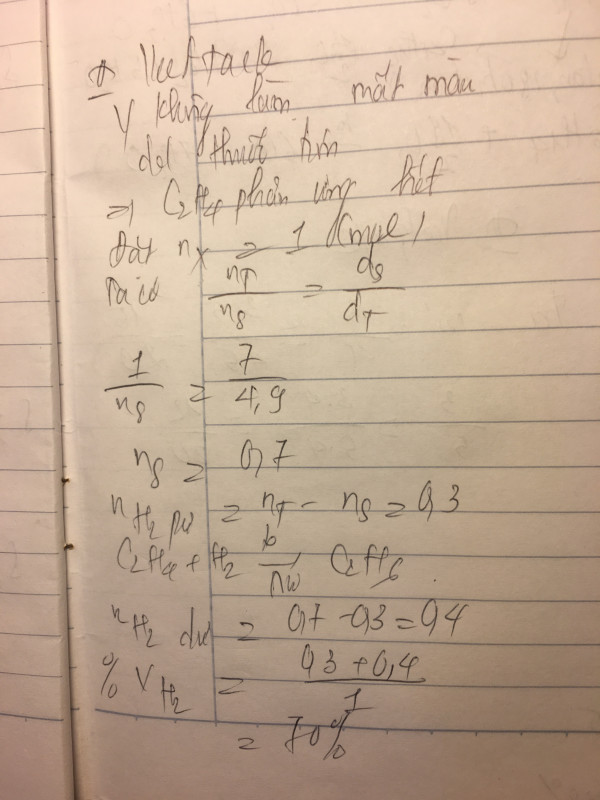 Y không làm mất màu
dd thuốc tím
=> C2H4 phản ứng hết
Đặt nX = 1 (mol)
Ta có nT / nS = dS / dT
1 / nS = 7 / 4,9
nS = 0,7
nH2 pư = nT - nS = 0,3
C2H4 + H2 to / Ni C2H6
nH2 dư = 0,7 - 0,3 = 0,4
% VH2 = 0,3 + 0,4 / 1
= 70%